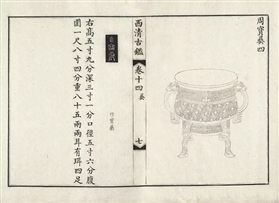 周寶彝四
西清古鑑
卷十四
彝
七
作寶彝
右高五寸九分深三寸一分口徑五寸六分腹
圍一尺八寸四分重八十五兩兩耳有珥四足